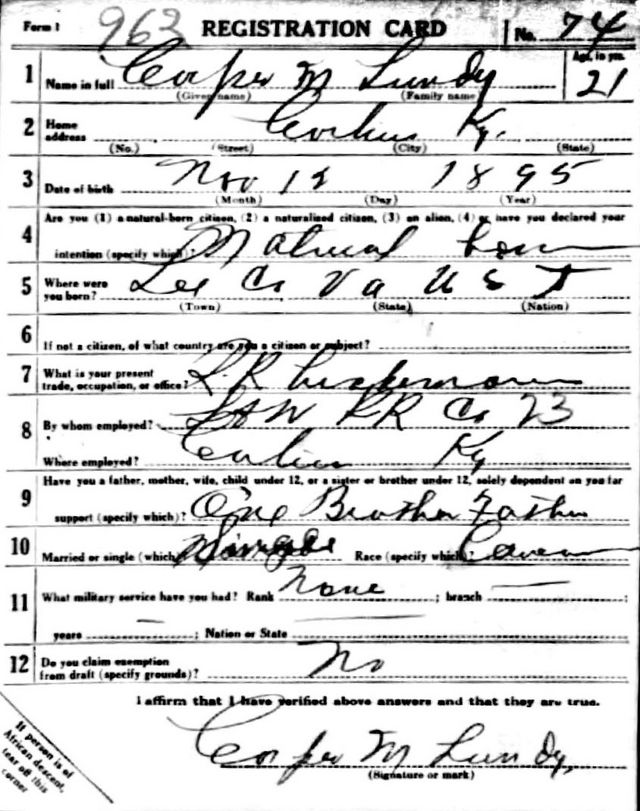 Form 1 963 REGISTRATION CARD No. 74
1 Name in full Casper M Lundy Age, in yrs. 21
(Given name) (Family name)
2 Home address Corbin Ky.
(No.) (Street) (City) (State)
3 Date of birth Nov 12 1895
(Month) (Day) (Year)
Are you (1) a natural-born citizen, (2) a naturalized citizen, (3) an alien, (4) or have you declared your
4 intention (specify which)? Natural born
5 Where were you born? Lee Co Va U S
(Town) (State) (Nation)
6 If not a citizen, of what country are you a citizen or subject?
7 What is your present trade, occupation, or office? R R
8 By whom employed? L & N RR Co 23
Where employed? Corbin Ky
Have you a father, mother, wife, child under 12, or a sister or brother under 12, solely dependent on you for
9 support (specify which)? One Brother Father
10 Married or single (which)? Single Race (specify which)?
11 What military service have you had? Rank None ; branch — ;
years — ; Nation or State —
12 Do you claim exemption from draft (specify grounds)? No
I affirm that I have verified above answers and that they are true.
Casper M Lundy,
(Signature or mark)
If person is of
African descent,
tear off this
corner